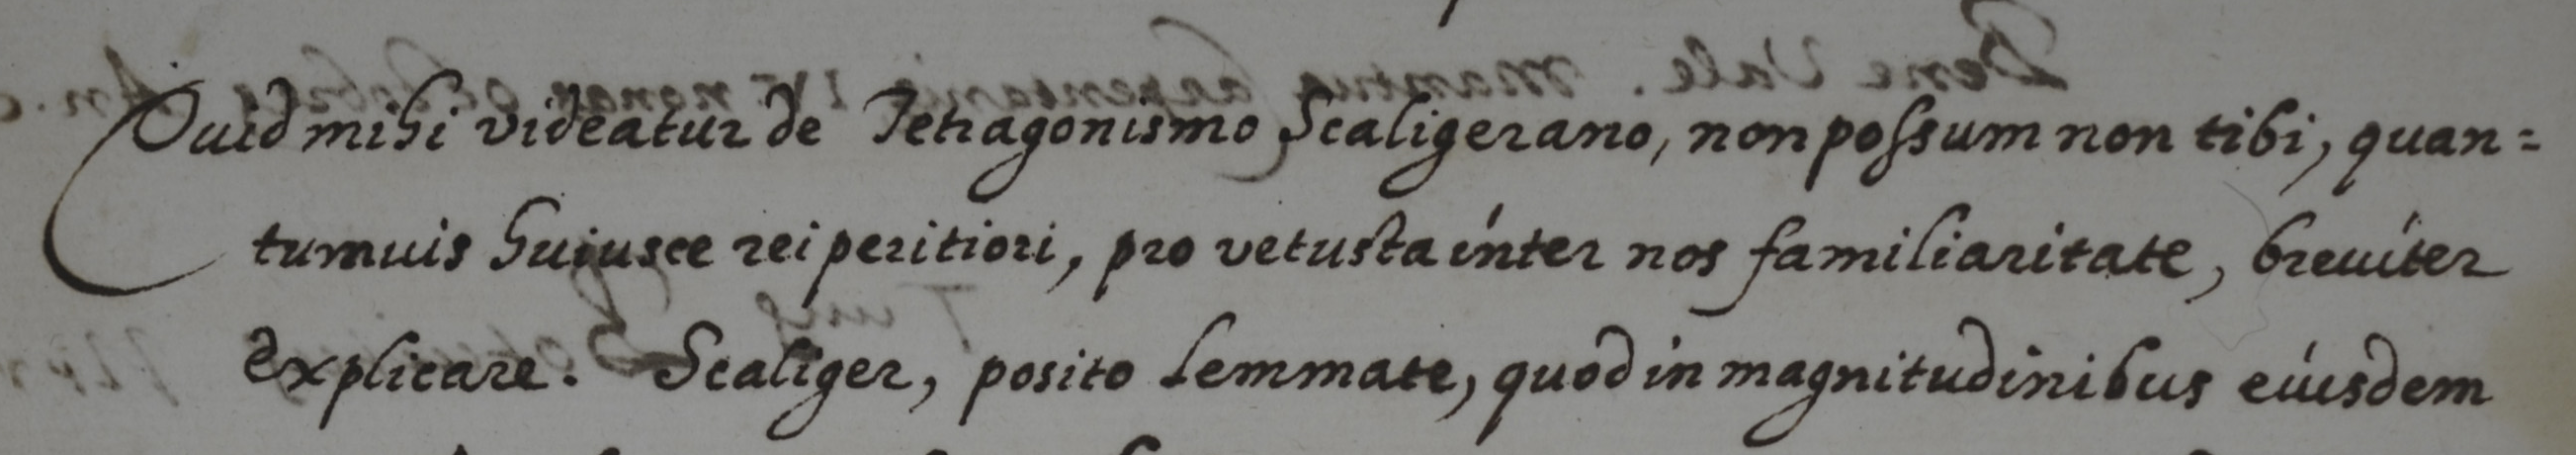 Quid mihi videatur de Tetragonismo Scaligerano, non possum non tibi, quan=
tumuis huiusce rei peritiori, pro vetusta inter nos familiaritate, breuiter
explicare. Scaliger, posito Lemmate, quod in magnitudinibus eiusdem